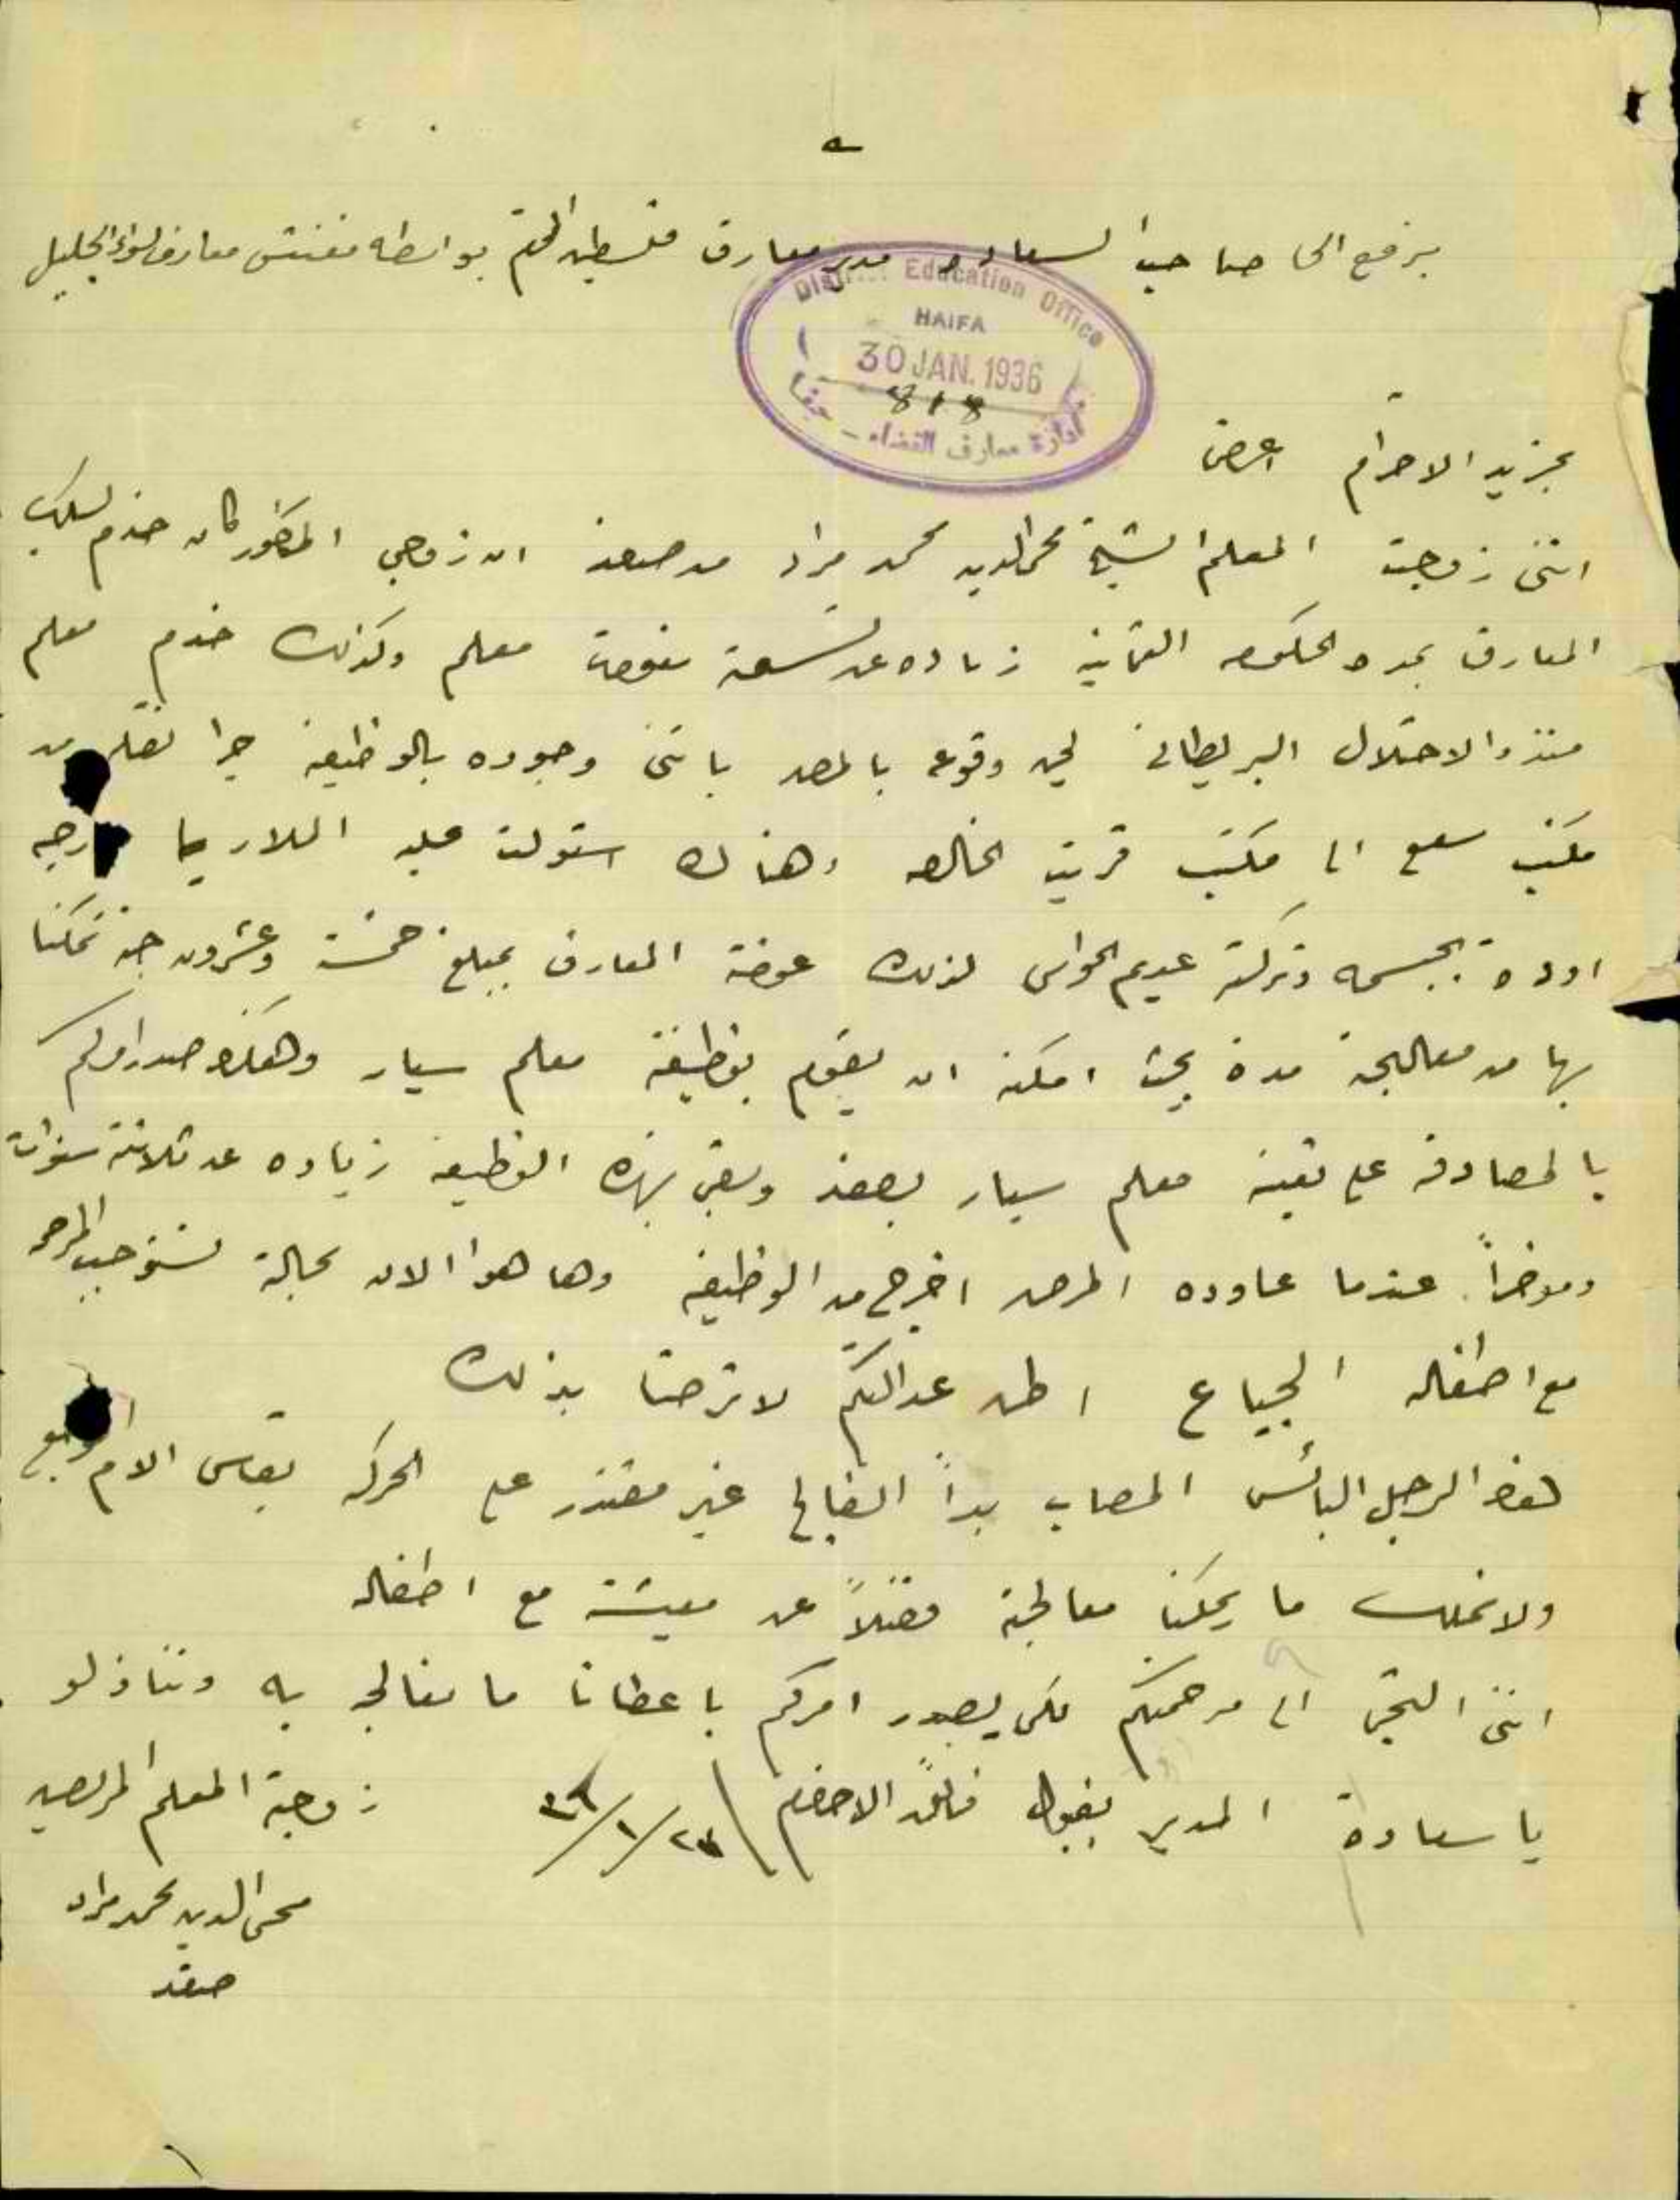 يرفع الى صاحب السعاده مدير معارف فلسطين المحترم بواسطة مفتش معارف لواء الجليل
District Education Office
HAIFA
30 JAN. 1936
818
ادارة معارف القضاء - حيفا
بمزيد الاحترام اعرض
انني زوجت المعلم الشيخ محي الدين محمد مراد من صفد ان زوجي المذكور كان خدم بسلك
المعارف بمدة الحكومه العثمانيه زياده عن تسعة سنوات معلم وكذلك خدم معلم
منذ الاحتلال البريطاني لحين وقوعه بالمرض باثنى وجوده بالوظيفه جرا نقله من
مكتب سعسع الى مكتب قرية الخالصه وهناك استولت عليه الملاريا
بجسمه وتركته عديم الحواس لذلك عوضة المعارف بمبلغ خمسة وعشرون جنيه تمكنا
بها من معالجته مدة بحيث امكنه ان يقوم بوظيفة معلم سيار وهكذا صدر امركم
بالمصادقه على تعينه معلم سيار بصفد وبقي بهذه الوظيفه زياده عن ثلاثة سنوات
وموخراً عندما عاوده المرض اخرج من الوظيفه وها هو الان بحالة تستوجب المرحمه
مع اطفاله الجياع اظن عدالتكم لا ترضا بذلك
هذا الرجل البائس المصاب بداً الفالج غير مقتدر على الحركه يقاسى الام
ولا نملك ما يمكنا معالجته فضلاً عن معيشته مع اطفاله
انني التجئ الى مرحمتكم لكي يصدر امركم باعطانا ما نعالجه به وتنازلو
يا سعادة المدير بقبول فائق الاحترام ٢٧/١/٣٦ زوجة المعلم المريض
محي الدين محمد مراد
صفد